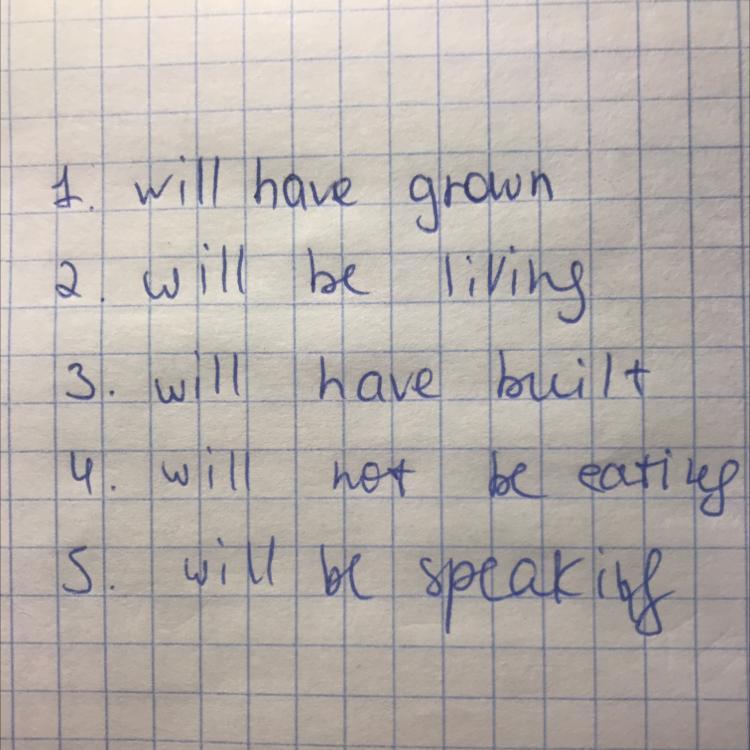 1. will have grown
2. will be living
3. will have built
4. will not be eating
5. will be speaking